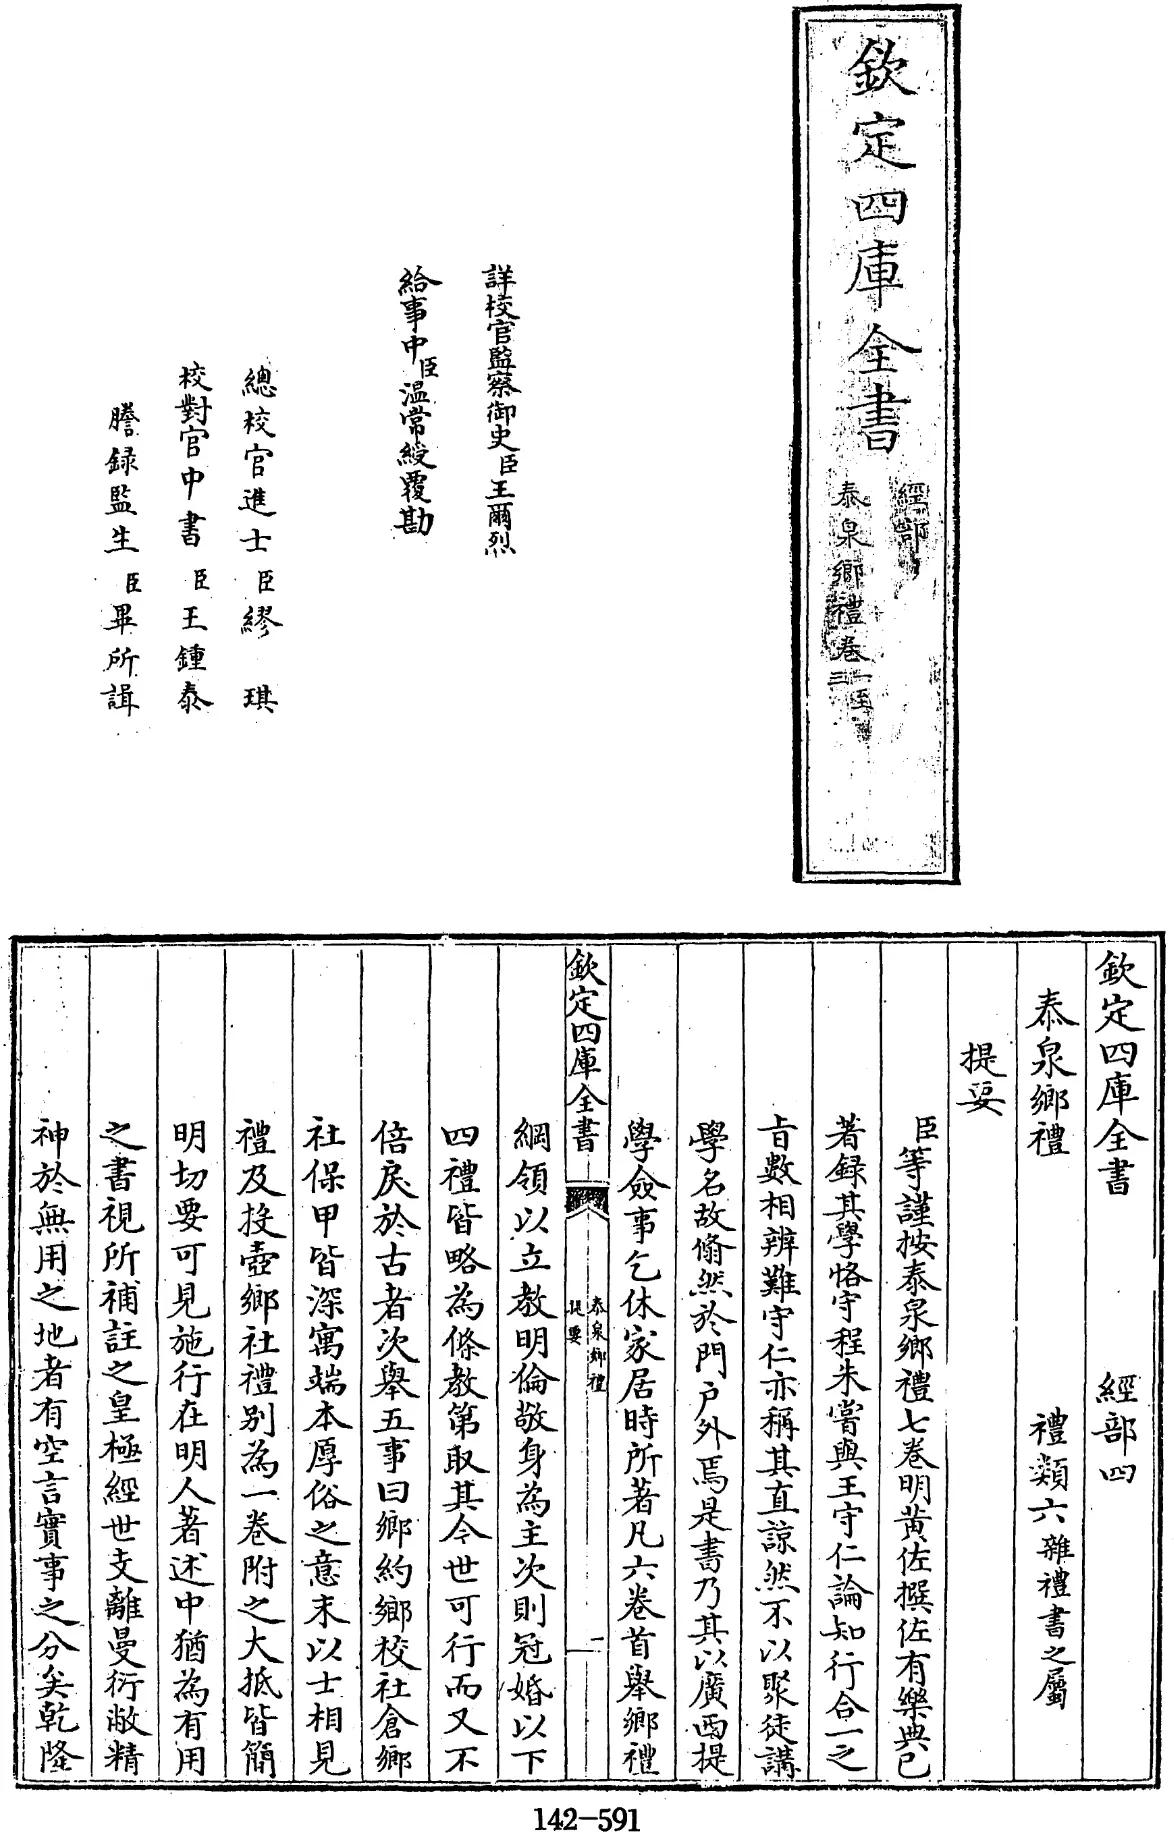 欽定四庫全書
經部
泰泉鄉禮卷一至三
詳校官監察御史臣王爾烈
給事中臣溫常綬覆勘
總校官進士臣繆琪
校對官中書臣王鍾泰
謄録監生臣畢所諿
欽定四庫全書 經部四
泰泉鄉禮 禮類六雜禮書之屬
提要
臣等謹按泰泉鄉禮七卷明黃佐撰佐有樂典已
著録其學恪守程朱嘗與王守仁論知行合一之
㫖數相辨難守仁亦稱其直諒然不以聚徒講
學名故翛然於門户外焉是書乃其以廣西提
學僉事乞休家居時所著凡六卷首舉鄉禮
欽定四庫全書
泰泉鄉禮
提要
一
綱領以立教明倫敬身為主次則冠婚以下
四禮皆略為條教第取其今世可行而又不
倍戾於古者次舉五事曰鄉約鄉校社倉鄉
社保甲皆深寓端本厚俗之意末以士相見
禮及投壺鄉社禮别為一卷附之大抵皆簡
明切要可見施行在明人著述中猶為有用
之書視所補註之皇極經世支離曼衍敝精
神於無用之地者有空言實事之分矣乾隆
142-591